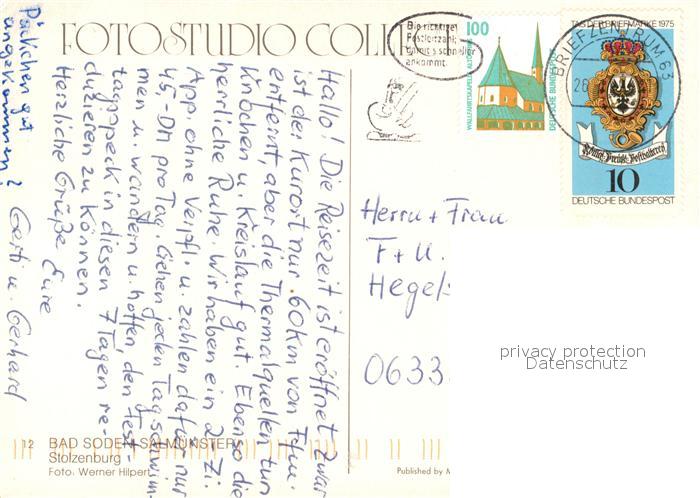 FOTOSTUDIO COLLE
Hallo! Die Reisezeit ist eröffnet. Zwar
ist der Kurort nur 60 km von Ffm.
entfernt, aber die Thermalquellen tun
Knochen u. Kreislauf gut. Ebenso die
herrliche Ruhe. Wir haben ein 2 Zi.
App. ohne Verpfl. u. zahlen dafür nur
45,- DM pro Tag. Gehen jeden Tag schwim-
men u. wandern u. hoffen, den Fest-
tagsspeck in diesen 7 Tagen re-
duzieren zu können.
Herzliche Grüße Eure
Gerti u. Gerhard
Päckchen gut
angekommen?
Die richtige
Postleitzahl
damit's schneller
ankommt.
100
WALLFAHRTSKAPELLE ALTÖ
DEUTSCHE BUNDESPOST
TAG DER BRIEFMARKE 1975
BRIEFZENTRUM 63
Königl. Preuß. Posthalterei
10
DEUTSCHE BUNDESPOST
Herrn + Frau
F + U.
Hegels
0633
privacy protection
Datenschutz
12 BAD SODEN-SALMÜNSTER
Stolzenburg
Foto: Werner Hilpert
Published by M